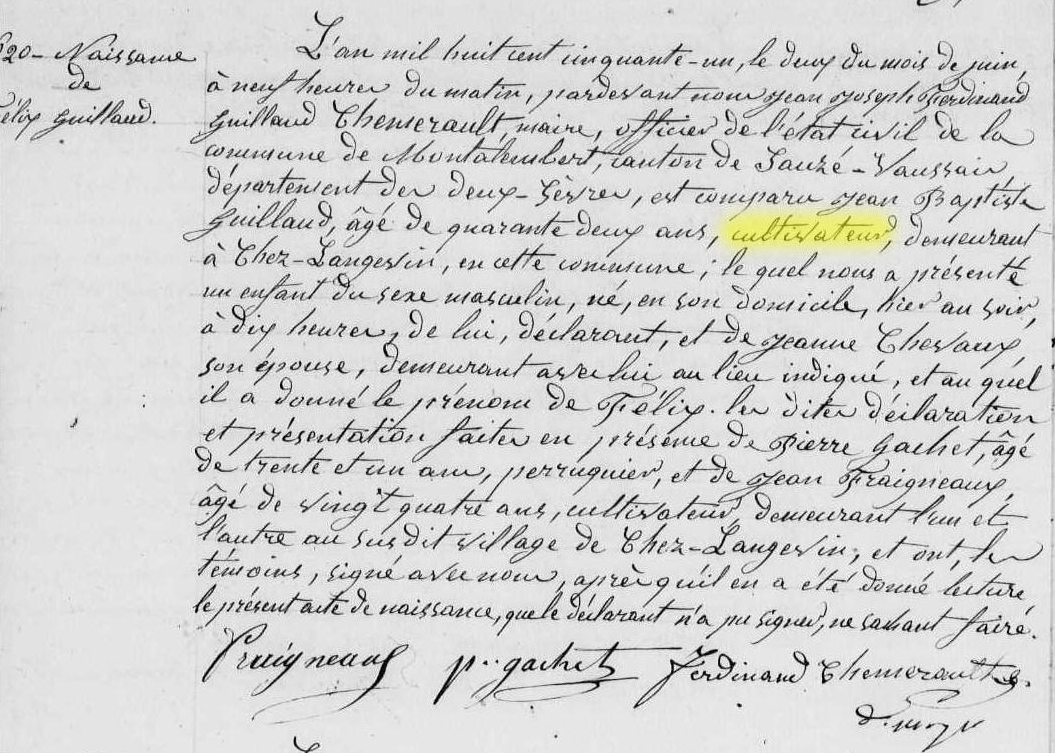 20 - Naissance
de
Félix Guillaud.
L'an mil huit cent cinquante-un, le deux du mois de juin,
à neuf heures du matin, pardevant nous Jean Joseph Ferdinand
Guillaud Themerault, maire, officier de l'état civil de la
commune de Montalembert, canton de Sauzé-Vaussais,
département des deux-Sèvres, est comparu Jean Baptiste
Guillaud, âgé de quarante deux ans, cultivateur, demeurant
à Chez-Langevin, en cette commune; le quel nous a présenté
un enfant du sexe masculin, né, en son domicile, hier au soir,
à dix heures, de lui, déclarant, et de Jeanne Chevaux,
son épouse, demeurant avec lui au lieu indiqué, et au quel
il a donné le prénom de Félix. les dites déclaration
et présentation faites en présence de Pierre Gachet, âgé
de trente et un ans, perruquier, et de Jean Fraigneaux,
âgé de vingt quatre ans, cultivateur, demeurant l'un et
l'autre au susdit village de Chez-Langevin; et ont, les
témoins, signé avec nous, après qu'il en a été donné lecture
le présent acte de naissance, que le déclarant n'a pu signer, ne sachant faire.
Fraigneaux p. gachet Ferdinand Themerault G.